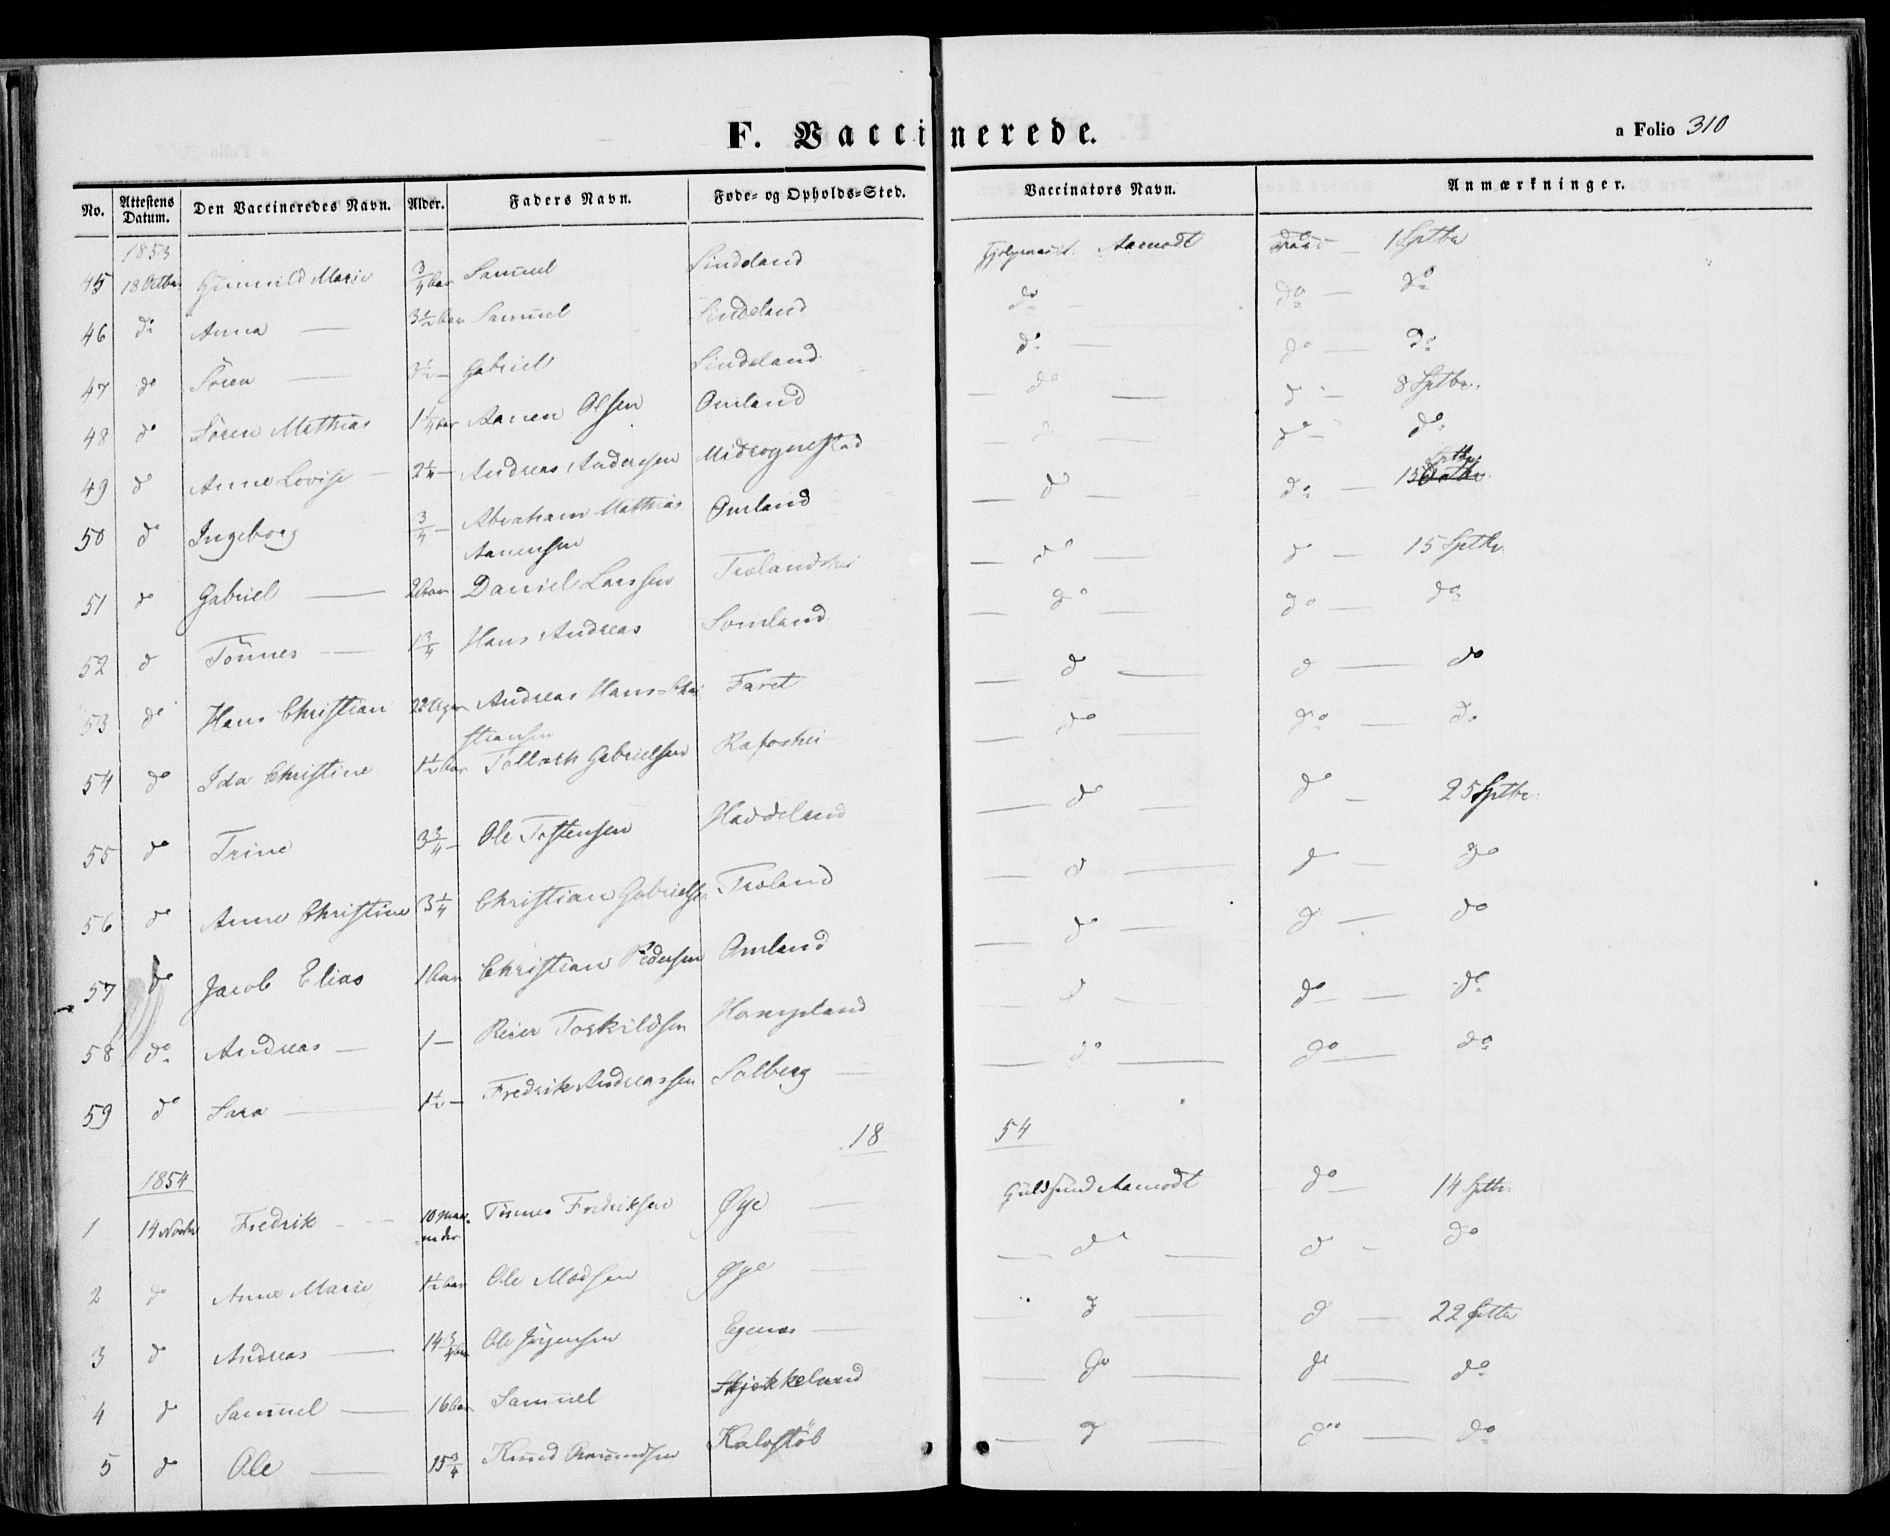 F. Vaccinerede.
a Folio 310
No. Attestens Datum. Den Vaccineredes Navn. Alder. Faders Navn. Føde- og Opholds-Sted. Vaccinators Navn. Anmærkninger.
1853
45 18 Octbr Gunnild Marie 3/4 aar Samuel Sindeland Aamodt 1 Sptbr
46 do Anna — 3 1/2 aar Samuel Sindeland do — do — do
47 do Sören — 3 1/2 — Gabriel Sindeland do — do — do
48 do Sören Mathias 1 1/4 aar Aanen Olsen Omland — do — do — 8 Sptbr.
49 do Anne Lovise — 2 1/4 — Andreas Andersen Midtognestad — do — do — do
50 do Ingeborg 3/4 — Abraham Mathias Omland — do — do — 13 Sptbr
Aanensen
51 do Gabriel — 2 aar Daniel Larssen Trælandshei — do — do — 15 Sptbr.
52 do Tönnes — 1 3/4 Hans Andreas Somland — do — do — do
53 do Hans Christian 22 Uger Andreas Hans-Chri Faret — do — do — do
stiansen
54 do Ida Christine 1 1/2 aar Tallack Gabrielsen — do — do — do
55 do Trine 3 3/4 — Ole Tostensen Haddeland — do — do — 25 Sptbr.
56 do Anne Christine 3 1/4 Christian Gabrielsen Træland — do — do — do
57 do Jacob Elias 1 aar Christian Pedersen Omland — do — do — do
58 do Andreas — 1 — Reier Torkildsen — do — do — do
59 do Sara — 1 1/2 — Fredrik Andreassen Solberg — do — do — do
18 54
1854
1 14 Novbr Fredrik — 10 Maa- Tönnes Fredriksen Øye — Guldsmed Aamodt do — 14 Sptbr
neder
2 do Anne Marie 1 1/2 aar Ole Madsen Øye — do — do — do
3 do Andreas — 14 3/4 aar Ole Jörgensen Egenes — do — do — 22 Sptbr
4 do Samuel — 16 aar Samuel Stjokkeland do — do — do
5 do Ole — 15 3/4 Knud Kaloftöb — do — do — do